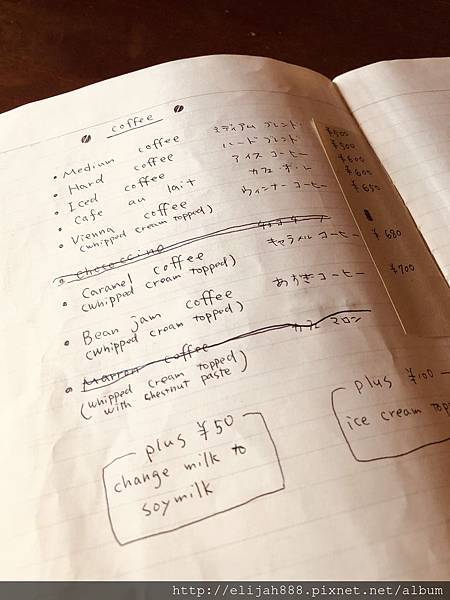 coffee
• Medium coffee ミディアム ブレンド ¥500
• Hard coffee ハード ブレンド ¥500
• Iced coffee アイス コーヒー ¥600
• Cafe au lait カフェ オ・レ ¥600
• Vienna coffee ウィンナー コーヒー ¥650
(whipped cream topped)
• Chococcino
• Caramel coffee キャラメル コーヒー ¥680
(whipped cream topped)
• Bean jam coffee あずきコーヒー ¥700
(whipped cream topped)
• Marron coffee カフェ マロン
(whipped cream topped
with chestnut paste)
plus ¥50
change milk to
soymilk
plus ¥100
ice cream
http://elijah888.pixnet.net/album